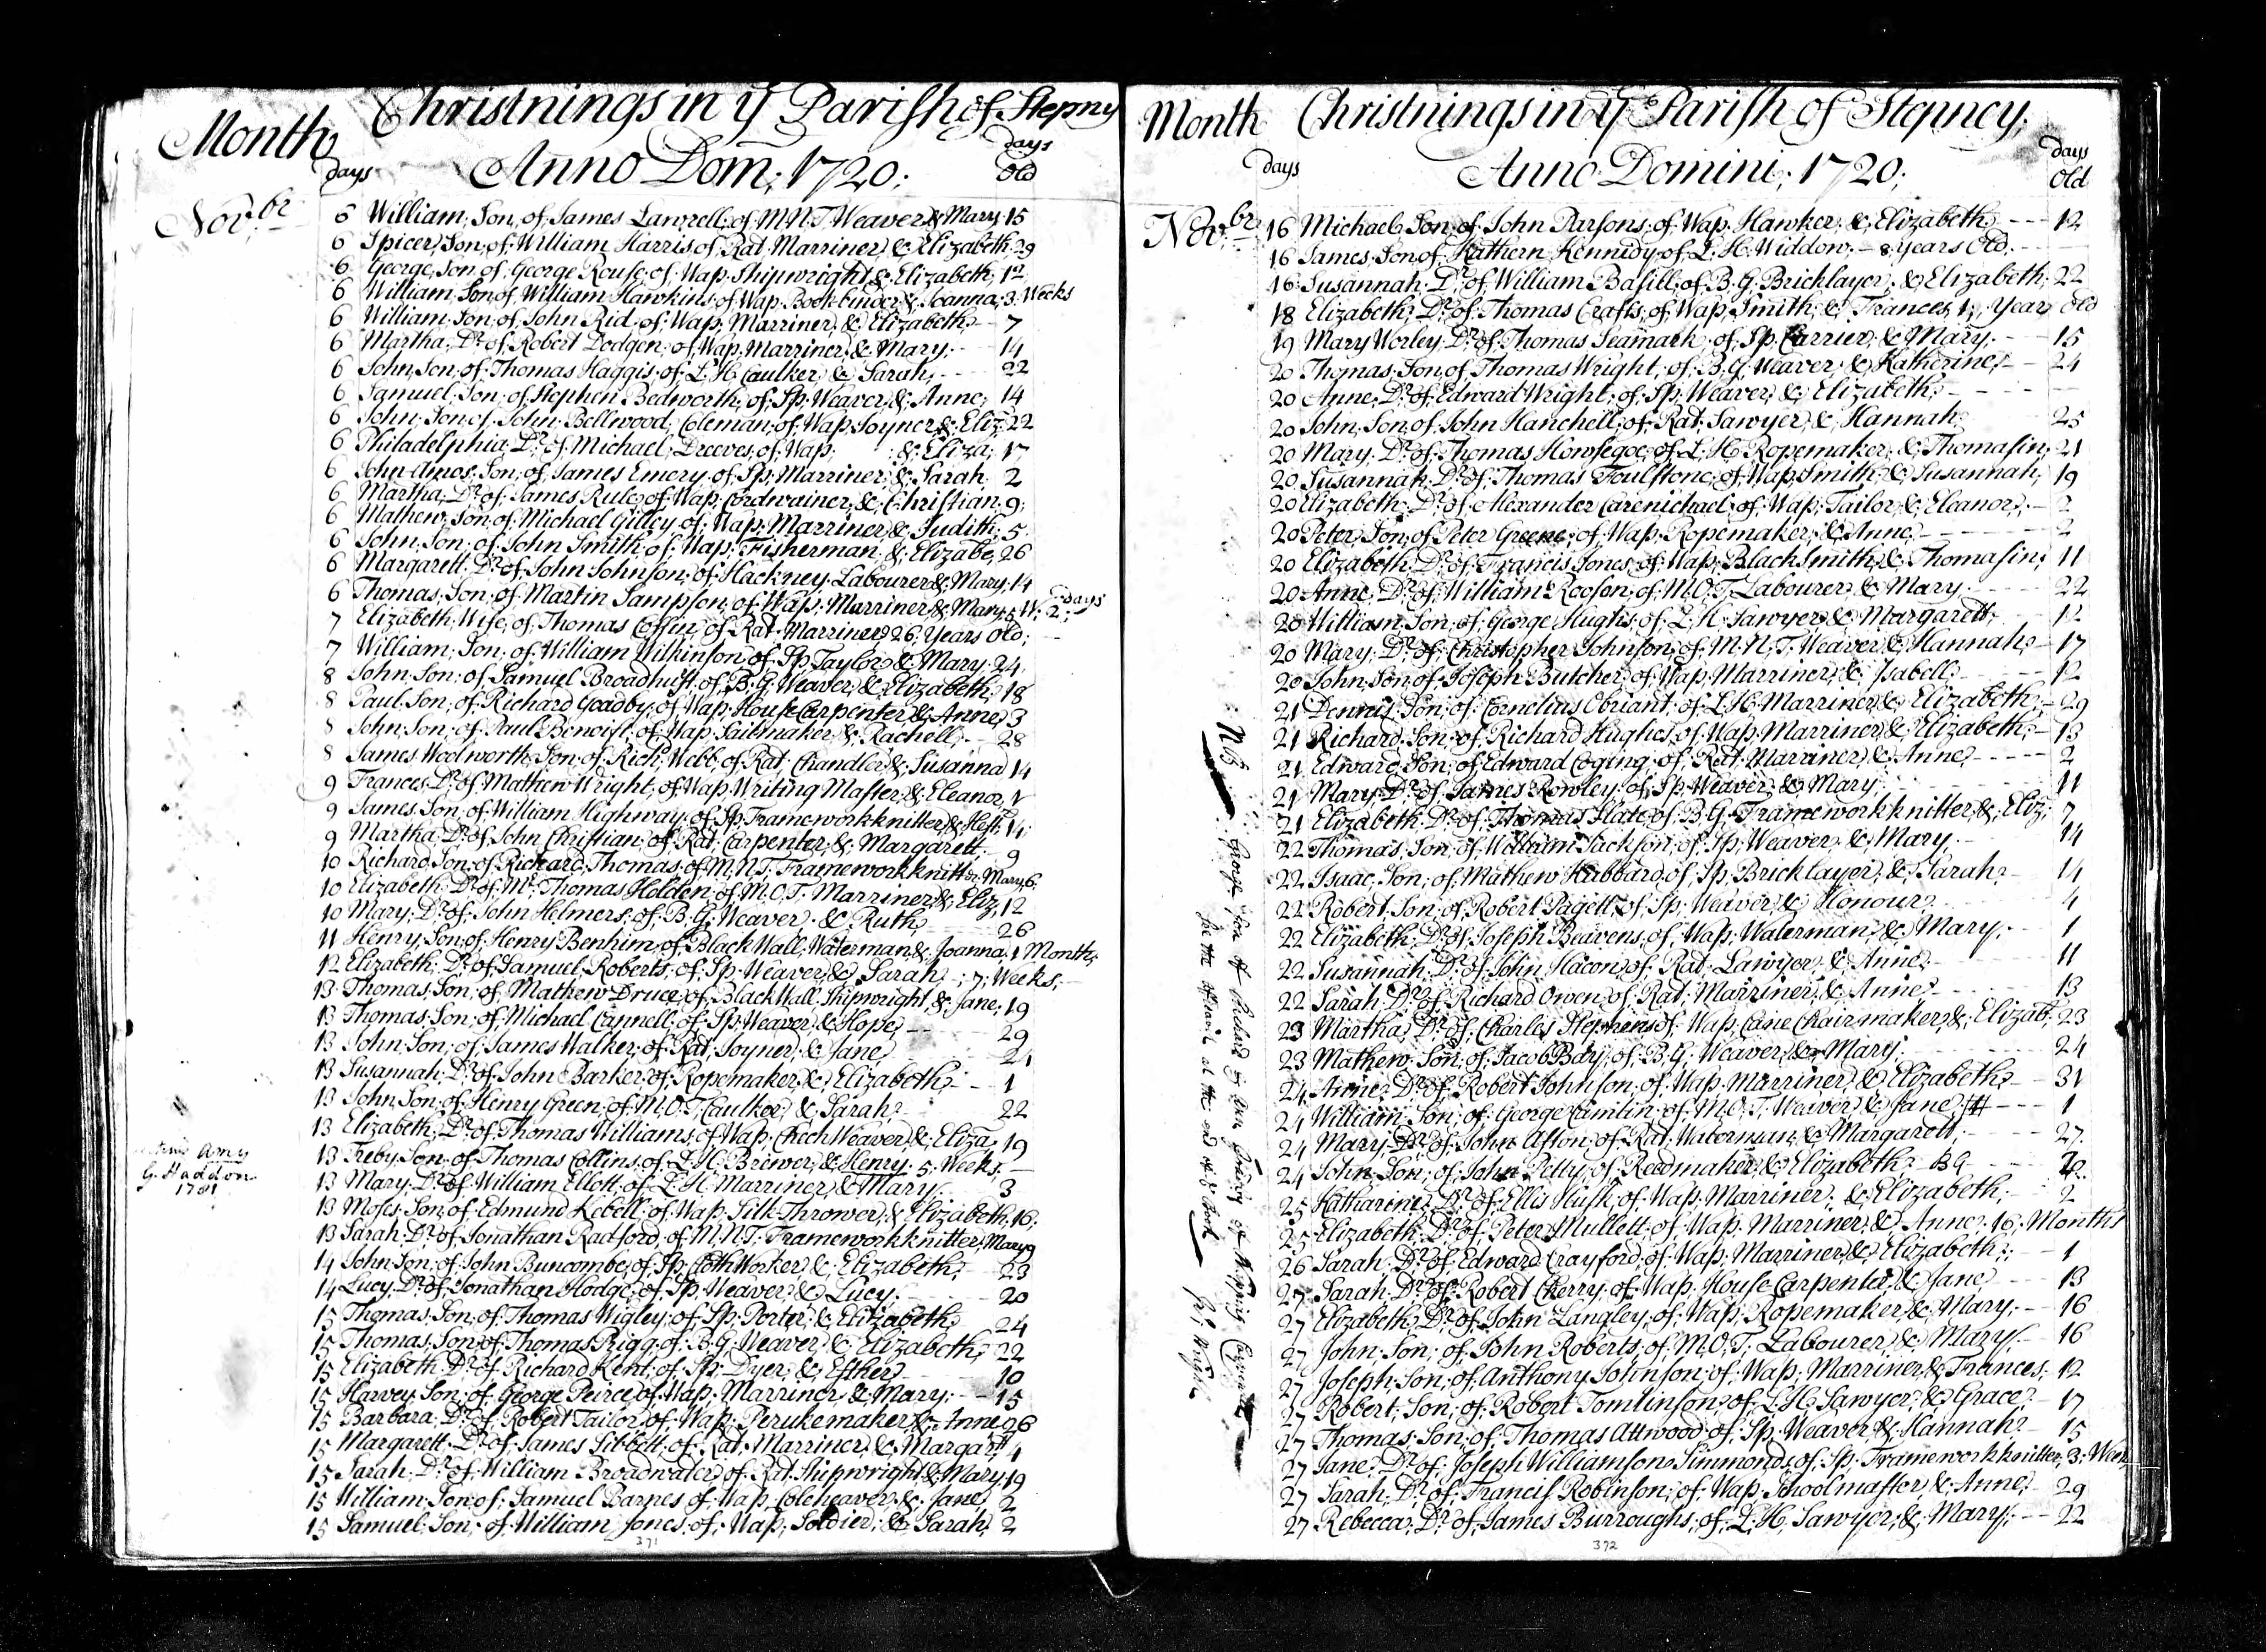 Month
Christnings in ye Parish of Stepny
days
Anno Dom; 1720;
days Old
Novbr
6 William; Son; of James Lawrell; of M.N.T. Weaver & Mary; 15
6 Spicer; Son; of William Harris of Rat. Marriner; & Elizabeth; 29
6 George; Son of; George Rouse; of; Wap; Shipwright; & Elizabeth; 12
6 William; Son of; William Hawkins; of Wap. Bookbinder; & Joanna; 3 Weeks
6 William; Son; of; John Rid; of; Wap; Marriner; & Elizabeth; 7
6 Martha; Dr of; Robert Dodgen; of; Wap; Marriner; & Mary; 14
6 John; Son; of; Thomas Haggis; of; L.H. Caulker; & Sarah; 22
6 Samuel; Son; of Stephen Bedworth; of; Sp; Weaver; & Anne; 14
6 John; Son of; John Bellwood; Coleman; of; Wap; Joyner; & Eliz; 22
6 Philadelphia; Dr of; Michael Dreeves; of; Wap; & Eliza; 17
6 John Amos; Son; of; James Emery; of; Sp; Marriner; & Sarah; 2
6 Martha; Dr of; James Rule; of Wap; Cordwainer; & Christian; 9;
6 Mathew; Son; of; Michael Gilley; of; Wap; Marriner; & Judith; 5
6 John; Son; of; John Smith; of; Wap; Fisherman; & Elizabe; 26
6 Margarett; Dr of; John Johnson; of; Hackney; Labourer; & Mary; 14
6 Thomas; Son; of Martin Sampson; of Wap; Marriner; & Mary; 5 W. 2 days
7 Elizabeth; Wife; of; Thomas Coffin; of Rat; Marriner; 26; Years Old;
7 William; Son; of; William Wilkinson; of Sp; Taylor; & Mary; 24
8 John; Son; of Samuel Broadhurst; of; B.G. Weaver; & Elizabeth; 18
8 Paul; Son; of; Richard Goadby; of Wap; House Carpenter; & Anne; 3
8 John; Son; of; Paul Benoist; of; Wap; Sailmaker; & Rachell; 28
8 James Woolworth; Son; of Rich; Webb; of Rat; Chandler; & Susanna 14
9 Frances; Dr of Mathew Wright; of Wap; Writing Master; & Eleanor, 1
9 James; Son; of; William Highway; of Sp; Frameworkknitter; & Hest; 14
9 Martha; Dr of; John Christian; of; Rat; Carpenter; & Margarett; 9
10 Richard; Son; of Richard Thomas; of M.N.T; Frameworkknitter; Mary; 6;
10 Elizabeth; Dr of; Mr Thomas Holden; of M.O.T; Marriner; & Eliz; 12
10 Mary; Dr of; John Helmers; of; B.G. Weaver; & Ruth; 26
11 Henry; Son; of; Henry Benhim; of; Black Wall; Waterman; & Joanna; 1 Month;
12 Elizabeth; Dr of; Samuel Roberts; of; Sp; Weaver; & Sarah; 7; Weeks;
13 Thomas; Son; of; Mathew Druce; of; Black Wall; Shipwright; & Jane; 19
13 Thomas; Son; of; Michael Cannell; of; Sp; Weaver; & Hope; 29
13 John; Son; of; James Walker; of Rat; Joyner; & Jane 21
13 Susannah; Dr of; John Barker; of; Ropemaker; & Elizabeth; 1
13 John; Son; of Henry Green; of M.O.T; Caulker; & Sarah; 22
13 Elizabeth; Dr of; Thomas Williams; of Wap; Check Weaver; & Eliza; 19
13 Treby; Son; of Thomas Collins; of; L.H. Brewer; & Henry; 5; Weeks
13 Mary; Dr of William Ellett; of; L.H. Marriner; & Mary; 3
13 Moses; Son; of Edmund Kebell; of Wap; Silk Thrower; & Elizabeth; 16;
13 Sarah; Dr of Jonathan Radford; of M.N.T; Frameworkknitter; Mary 9
14 John; Son; of John Buncombe; of; Sp; Clothworker; & Elizabeth; 23
14 Lucy; Dr of; Jonathan Hodge; of; Sp; Weaver; & Lucy; 20
15 Thomas; Son; of; Thomas Wigley; of Sp; Porter; & Elizabeth; 24
15 Thomas; Son; of Thomas Rigg; of; B.G; Weaver; & Elizabeth; 22
15 Elizabeth; Dr of; Richard Kent; of; Sp; Dyer; & Esther; 10
15 Harvey; Son; of; George Peirce; of Wap; Marriner; & Mary; 15
15 Barbara; Dr of; Robert Tailor; of Wap; Perukemaker; & Anne 26
15 Margarett; Dr of; James Sibbett; of; Rat; Marriner; & Margartt 4
15 Sarah; Dr of; William Broadwater; of Rat; Shipwright; & Mary; 19
15 William; Son; of; Samuel Barnes of; Wap; Coleheaver; & Jane 2
15 Samuel; Son; of William Jones; of; Wap; Soldier; & Sarah; 2
Amy
G. Haddon
1781
371
Month
Christnings in ye Parish of Stepney;
days
Anno Domini; 1720;
days Old
Novbr
16 Michael; Son; of; John Parsons; of; Wap; Hawker; & Elizabeth; 12
16 James; Son of; Kathern Kennidy; of; L.H. Widdow; 8 Years Old;
16 Susannah; Dr of William Basill; of; B.G. Bricklayer; & Elizabeth; 22
18 Elizabeth; Dr of Thomas Crafts; of Wap; Smith; & Frances; 1; Year Old
19 Mary Worley; Dr of; Thomas Seamark; of; Sp; Carrier; & Mary; 15
20 Thomas; Son; of Thomas Wright; of; B.G. Weaver; & Katherine; 24
20 Anne; Dr of; Edward Wright; of; Sp; Weaver; & Elizabeth;
20 John; Son; of John Hanchell; of; Rat; Sawyer; & Hannah; 25
20 Mary; Dr of; Thomas Howsegoe; of; L.H. Ropemaker; & Thomasin; 21
20 Susannah; Dr of; Thomas Foulstone; of Wap; Smith; & Susannah; 19
20 Elizabeth; Dr of; Alexander Carenichael; of; Wap; Tailor; & Eleanor; 2
20 Peter; Son; of Peter Greene; of Wap; Ropemaker; & Anne; 2
20 Elizabeth; Dr of Francis Jones; of Wap; BlackSmith; & Thomasin; 11
20 Anne; Dr of; William Rooson; of M.O.T; Labourer; & Mary; 22
20 William; Son; of; George Hughs; of; L.H. Sawyer; & Margarett; 12
20 Mary; Dr of; Christopher Johnson; of; M.N.T; Weaver; & Hannah; 17
20 John; Son; of Joseph Butcher; of; Wap; Marriner; & Isabell; 12
21 Dennis; Son; of; Cornelius Obriant; of; L.H. Marriner; & Elizabeth; 29
21 Richard; Son; of; Richard Hughes; of; Wap; Marriner; & Elizabeth; 13
21 Edward; Son; of; Edward Coging; of; Rat; Marriner; & Anne; 2
21 Mary; Dr of; James Rowley; of; Sp; Weaver; & Mary; 11
21 Elizabeth; Dr of; Thomas Slate; of B.G. Frameworkknitter; & Eliz; 7
22 Thomas; Son; of; William Jackson; of; Sp; Weaver; & Mary; 14
22 Isaac; Son; of; Mathew Hubbard; of; Sp; Bricklayer; & Sarah; 14
22 Robert; Son; of; Robert Pagett; of; Sp; Weaver; & Honour; 4
22 Elizabeth; Dr of; Joseph Beavens; of; Wap; Waterman; & Mary; 1
22 Susannah; Dr of; John Hacon; of; Rat; Lawyer; & Anne; 11
22 Sarah; Dr of; Richard Owen; of; Rat; Marriner; & Anne; 13
23 Martha; Dr of; Charles Stephens; of; Wap; Caine Chairmaker; & Elizab; 23
23 Mathew; Son; of; Jacob Bay; of; B.G; Weaver; & Mary; 24
24 Anne; Dr of; Robert Johnson; of; Wap; Marriner; & Elizabeth; 31
24 William; Son; of; George Camlin; of M.O.T; Weaver; & Jane; 1
24 Mary; Dr of; John Aston; of; Rat; Waterman; & Margarett; 27
24 John; Son; of; John Petty; of; Reedmaker; & Elizabeth; BG
25 Katharine; Dr of; Ellis Husk; of; Wap; Marriner; & Elizabeth; 2
25 Elizabeth; Dr of; Peter Mullett; of; Wap; Marriner; & Anne; 16; Months
26 Sarah; Dr of; Edward Crayford; of; Wap; Marriner; & Elizabeth; 1
27 Sarah; Dr of; Robert Cherry; of; Wap; House Carpenter; & Jane; 13
27 Elizabeth; Dr of; John Langley; of; Wap; Ropemaker; & Mary; 16
27 John; Son; of; John Roberts; of; M.O.T; Labourer; & Mary; 16
27 Joseph; Son; of; Anthony Johnson; of; Wap; Marriner; & Frances; 12
27 Robert; Son; of; Robert Tomlinson; of; L.H. Sawyer; & Grace; 17
27 Thomas; Son; of; Thomas Attwood; of; Sp; Weaver; & Hannah; 15
27 Jane; Dr of; Joseph Williamson Simmonds; of; Sp; Frameworkknitter; 3; Week
27 Sarah; Dr of; Francis Robinson; of; Wap; Schoolmaster; & Anne; 29
27 Rebecca; Dr of; James Burroughs; of; L.H. Sawyer; & Mary; 22
NB George Son of Richard & Ann of Wapping Carpenter
See the affidavit at the end of ye book
372